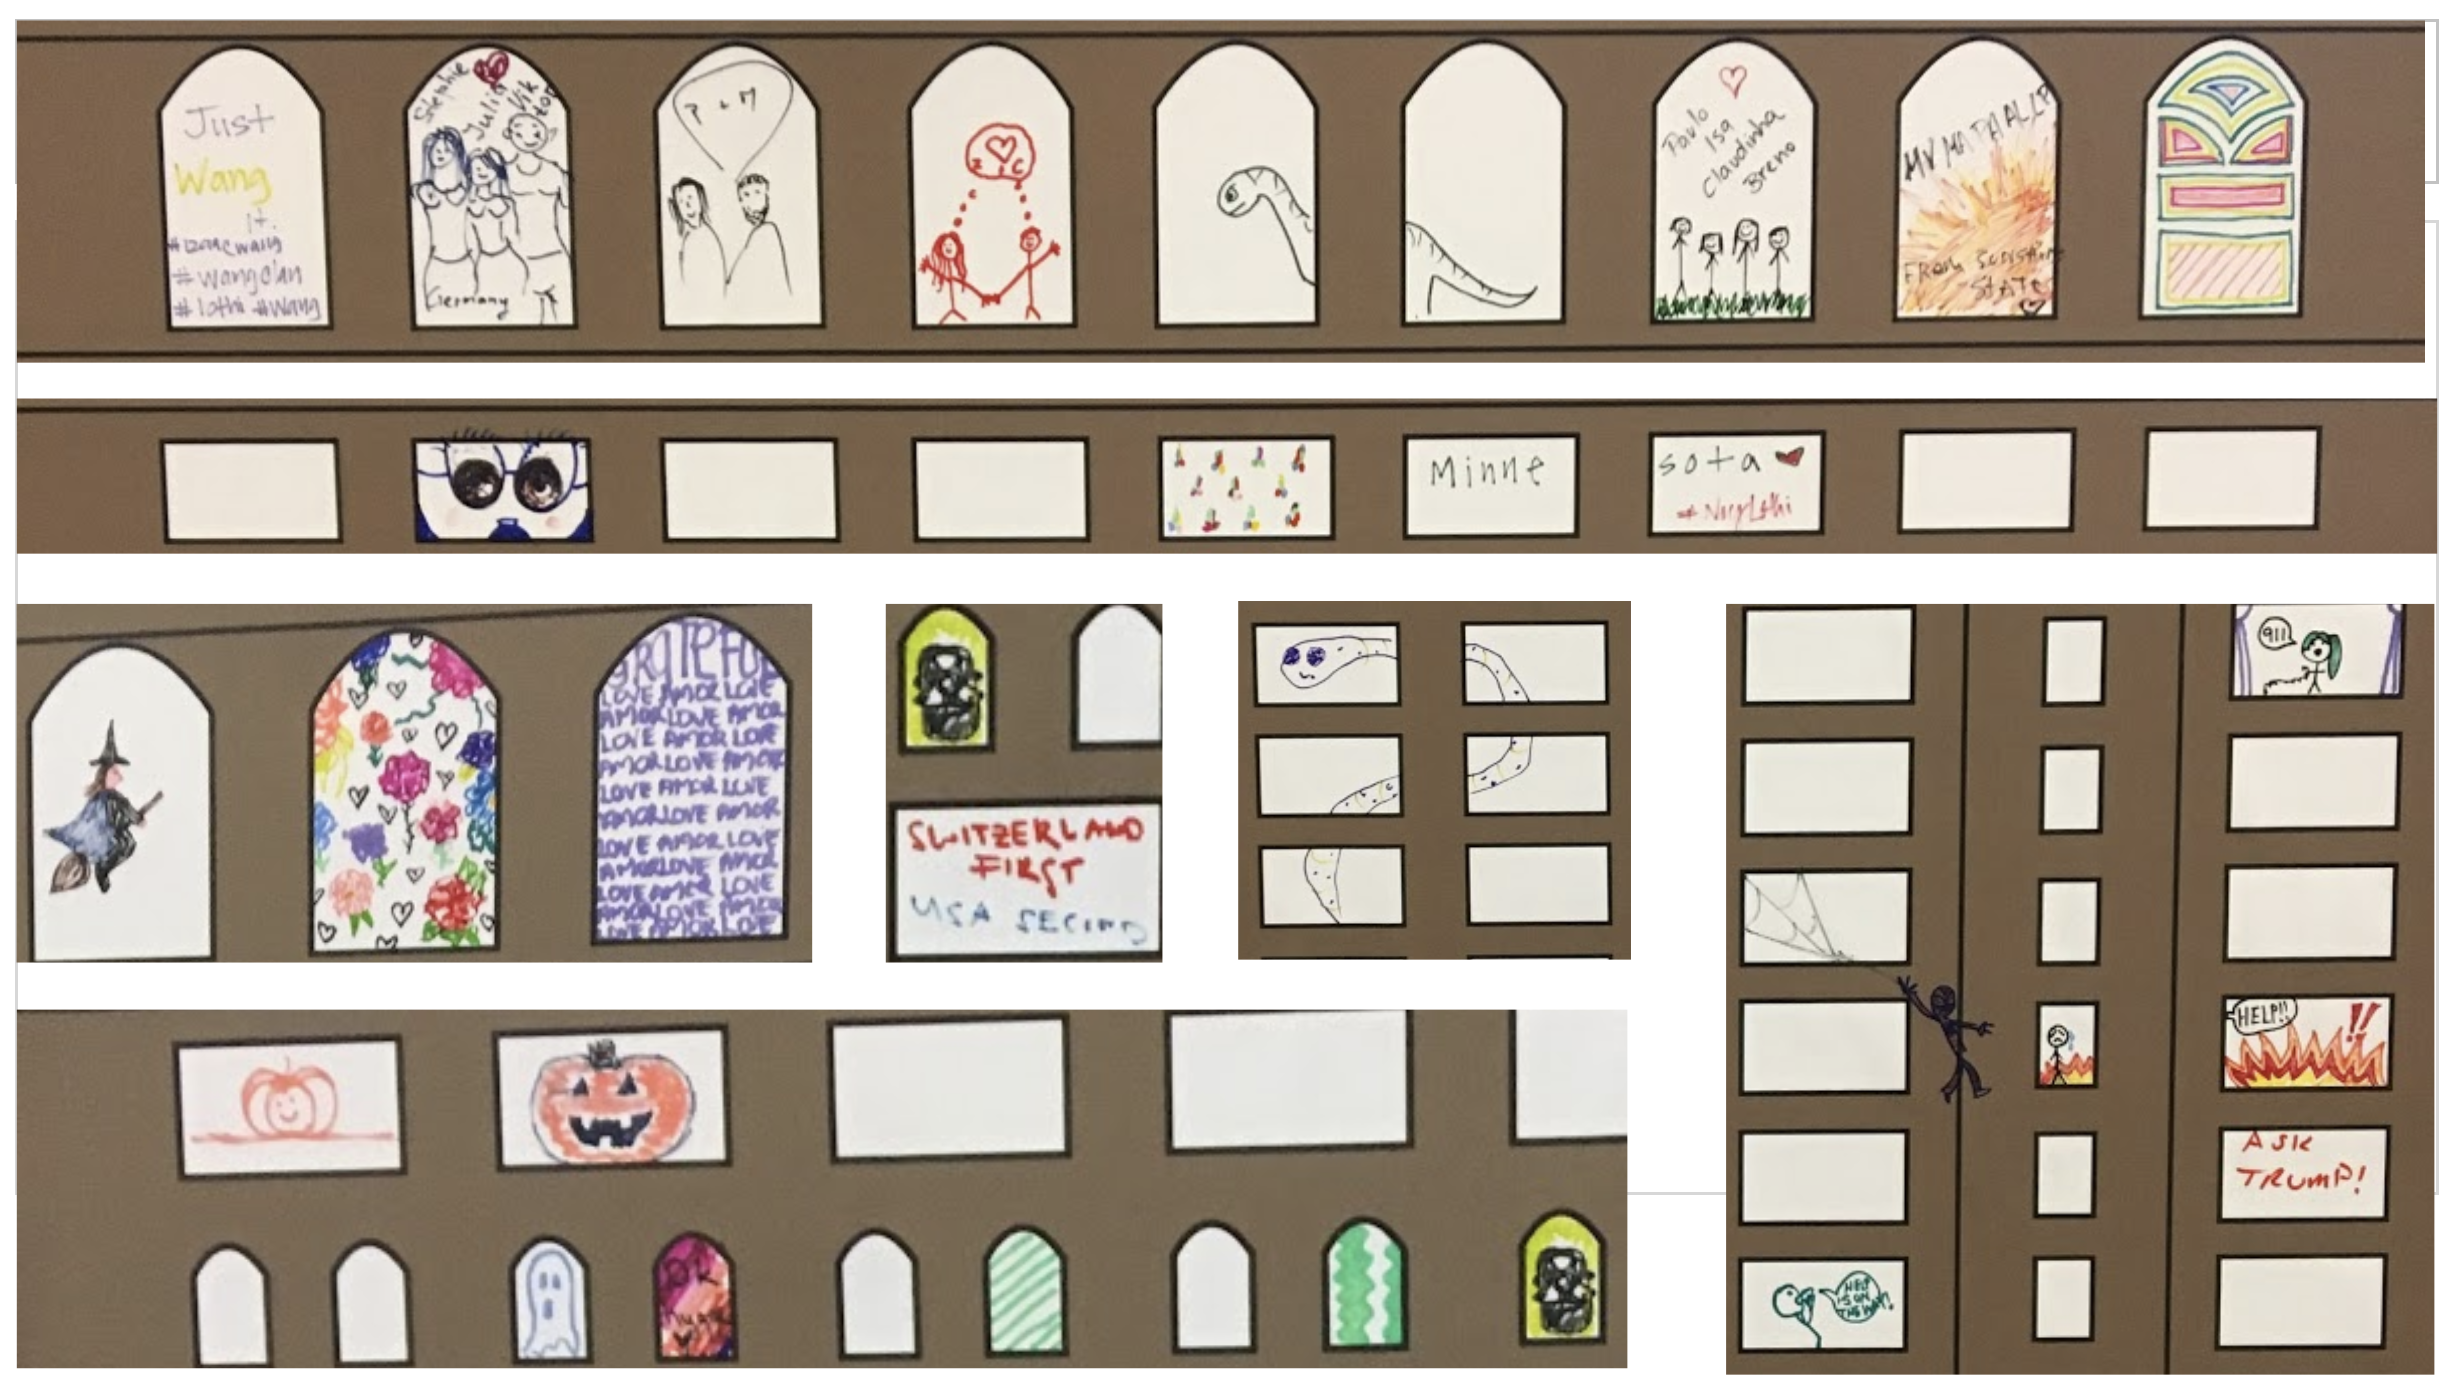 Just
Wang
it.
#wangclan
#lothi #Wang
Stephie
Julia
Viktor
Germany
P + M
Z C
Paulo
Isa
Claudinha
Breno
FROM SUNSHINE
STATE
Minne
sota
GRATEFUL
LOVE AMOR LOVE
AMOR LOVE AMOR
LOVE AMOR LOVE
AMOR LOVE AMOR
LOVE AMOR LOVE
AMOR LOVE AMOR
LOVE AMOR LOVE
AMOR LOVE AMOR
LOVE AMOR LOVE
AMOR LOVE AMOR
LOVE AMOR LOVE
SWITZERLAND
FIRST
USA SECOND
911
HELP!!
!!
ASK
TRUMP!
HELP
IS ON
THE WAY!